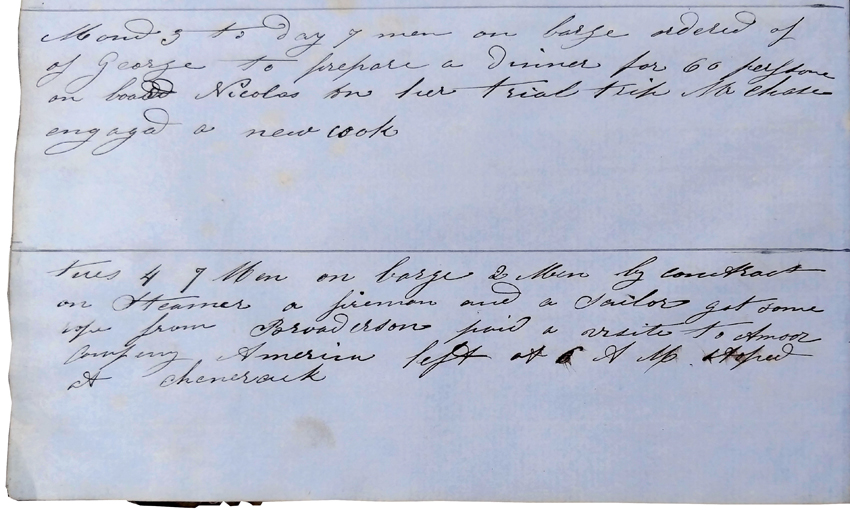 Mond 3 to day 7 men on barge ordered of
of George to prepare a Dinner for 60 persone
on board Nicolas on her trial trip Mr Chase
engagd a new cook
tues 4 7 Men on barge 2 Men by contract
on Steamer a fireman and a Sailor got some
rope from Broaderson paid a visite to Amoor
Company America left at 6 A M. stoped
at